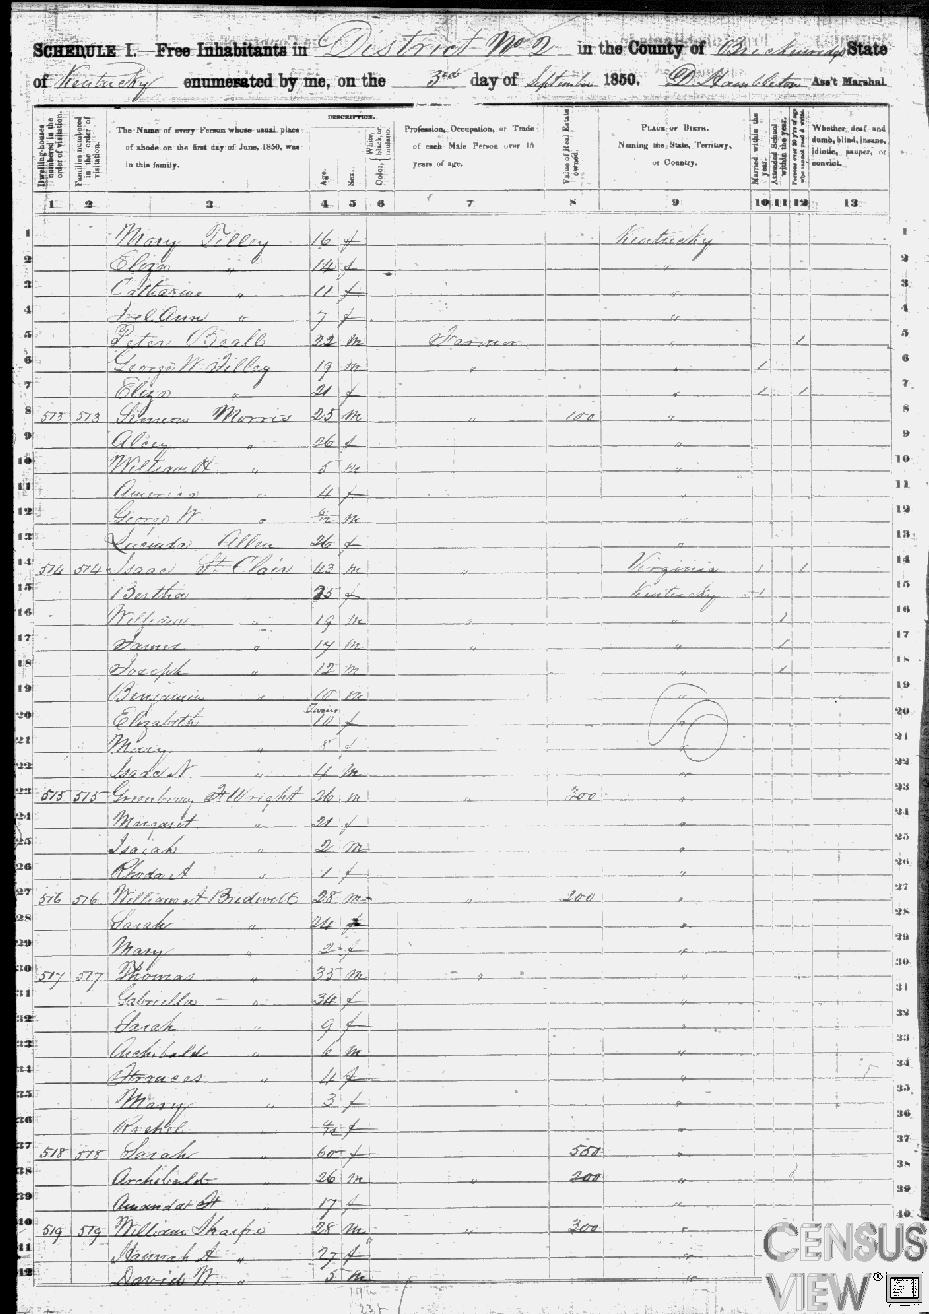 SCHEDULE I.—Free Inhabitants in District No 2 in the County of Breckenridge State
of Kentucky enumerated by me, on the 3rd day of September 1850. D. Hambleton Ass't Marshal.
Dwelling-houses numbered in the order of visitation.
Families numbered in the order of visitation.
The Name of every Person whose usual place of abode on the first day of June, 1850, was in this family.
DESCRIPTION.
Age.
Sex.
Color,
Profession, Occupation, or Trade of each Male Person over 15 years of age.
Value of Real Estate owned.
PLACE OF BIRTH. Naming the State, Territory, or Country.
Married within the year.
Attended School within the year.
Persons over 20 y'rs of age who cannot read & write.
Whether deaf and dumb, blind, insane, idiotic, pauper, or convict.
1 2 3 4 5 6 7 8 9 10 11 12 13
1 Mary Tilley 16 f Kentucky 1
2 Eliza " 14 f " 2
3 Catharine " 11 f " 3
4 Ann " 7 f " 4
5 Peter Beall 22 m Farmer " 1 5
6 George W Tilley 19 m " " 1 6
7 Eliza " 21 f " 1 1 7
8 513 513 Morris 25 m " 100 " 8
9 " 26 f " 9
10 William H " 5 m " 10
11 America " 4 f " 11
12 George W " m " 12
13 Lucinda Allen 26 f " 13
14 514 514 Isaac St. Clair 43 m " Virginia 1 1 14
15 Bertha " 35 f Kentucky 1 15
16 William " 19 m " " 1 16
17 James " 17 m " " 1 17
18 Joseph " 12 m " 1 18
19 Benjamin " 10 m " 19
20 Elizabeth Twins 10 f " 20
21 Mary " 8 f " 21
22 Isaac N " 4 m " 22
23 515 515 Allbright 26 m " 200 " 23
24 Margaret " 21 f " 24
25 Isaiah " 2 m " 25
26 Rhoda A " 1 f " 26
27 516 516 William A Bridwell 28 m " 200 " 27
28 Sarah " 24 f " 28
29 Mary " 2 f " 29
30 517 517 Thomas " 35 m " " 30
31 Gabriella " 34 f " 31
32 Sarah " 9 f " 32
33 Archibald " 6 m " 33
34 Frances " 4 f " 34
35 Mary " 3 f " 35
36 Rachel " f " 36
37 518 518 Sarah " 60 f 550 " 37
38 Archibald " 26 m " 200 " 38
39 " 17 f " 39
40 519 519 William Sharpe 28 m " 300 " 40
41 Hannah A " 27 f " 41
42 David W " 5 m "
CENSUS
VIEW®